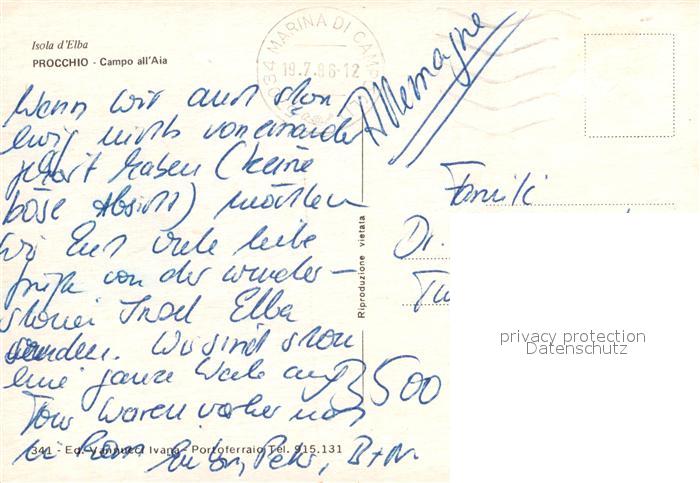 Isola d'Elba
PROCCHIO - Campo all'Aia
MARINA DI CAMPO
19.7.86-12
Allemagne
Wenn wir auch schon
ewig nichts voneinander
gehört haben (keine
böse Absicht) möchten
wir Euch viele liebe
Grüße von der wunder-
schönen Insel Elba
senden. Wir sind schon
eine ganze Woche auf
Tour waren vorher noch
in Rom
Peter, B+N.
Familie
Dr.
3500
Riproduzione vietata
341 - Ed. Vannucci Ivana - Portoferraio Tel. 915.131
privacy protection
Datenschutz